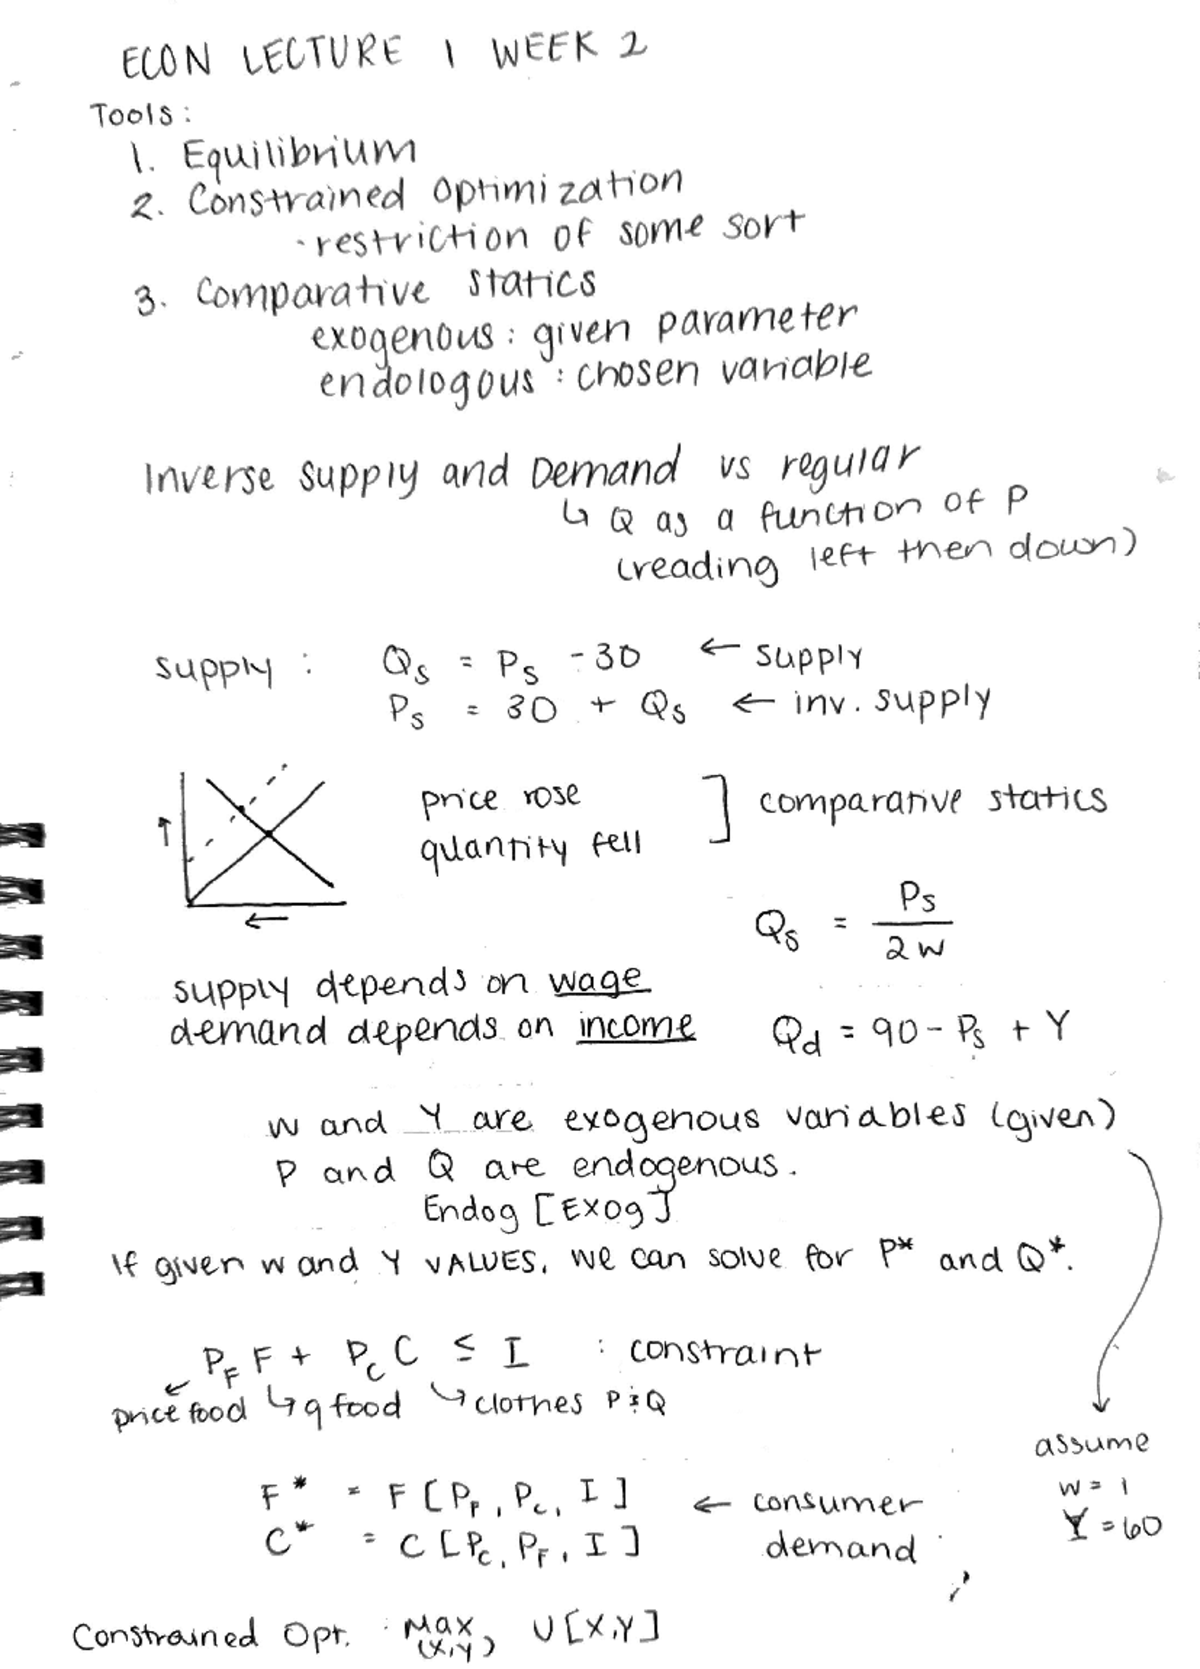 ECON LECTURE 1 WEEK 2
Tools:
1. Equilibrium
2. Constrained optimization
· restriction of some sort
3. Comparative statics
exogenous: given parameter
endologous: chosen variable
Inverse supply and Demand vs regular
↳ Q as a function of P
(reading left then down)
supply: Qs = Ps - 30 ← supply
Ps = 30 + Qs ← inv. supply
↑ price rose ] comparative statics
quantity fell
←
Qs = Ps / 2w
supply depends on wage
demand depends on income Qd = 90 - Ps + Y
w and Y are exogenous variables (given)
P and Q are endogenous.
Endog [Exog]
If given w and Y VALUES, we can solve for P* and Q*.
P_F F + P_C C ≤ I : constraint
price food ↳ q food ↳ clothes P & Q
assume
w = 1
Y = 60
F* = F [P_F, P_C, I] ← consumer
C* = C [P_C, P_F, I] demand
Constrained Opt. : Max U [X,Y]
(x,y)